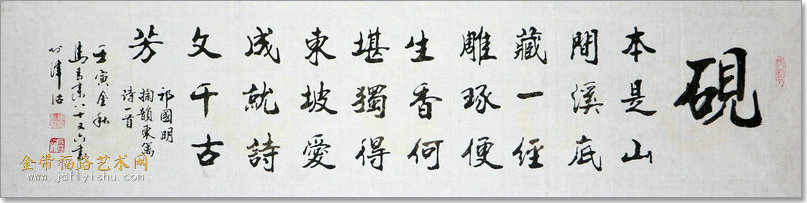 硯
本是山
間溪底
藏一經
雕琢便
生香何
堪獨得
東坡愛
成就詩
文千古
芳
祁國明
掬韻東篱
詩一首
壬寅金秋
八十又六書
於津沽
金带福路艺术网
www.jdflyishu.com